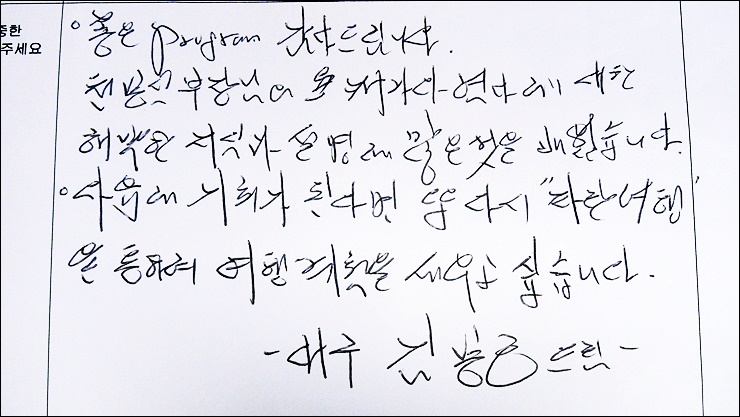 중한
주세요
◦ 좋은 program 감사드립니다.
천문석 부장님의 와 에 대한
해박한 지식과 설명에 많은 것을 배웠습니다.
◦ 다음에 기회가 된다면 또 다시 "파란여행"
을 통하여 여행계획을 세우고 싶습니다.
- 대구 김 드림 -